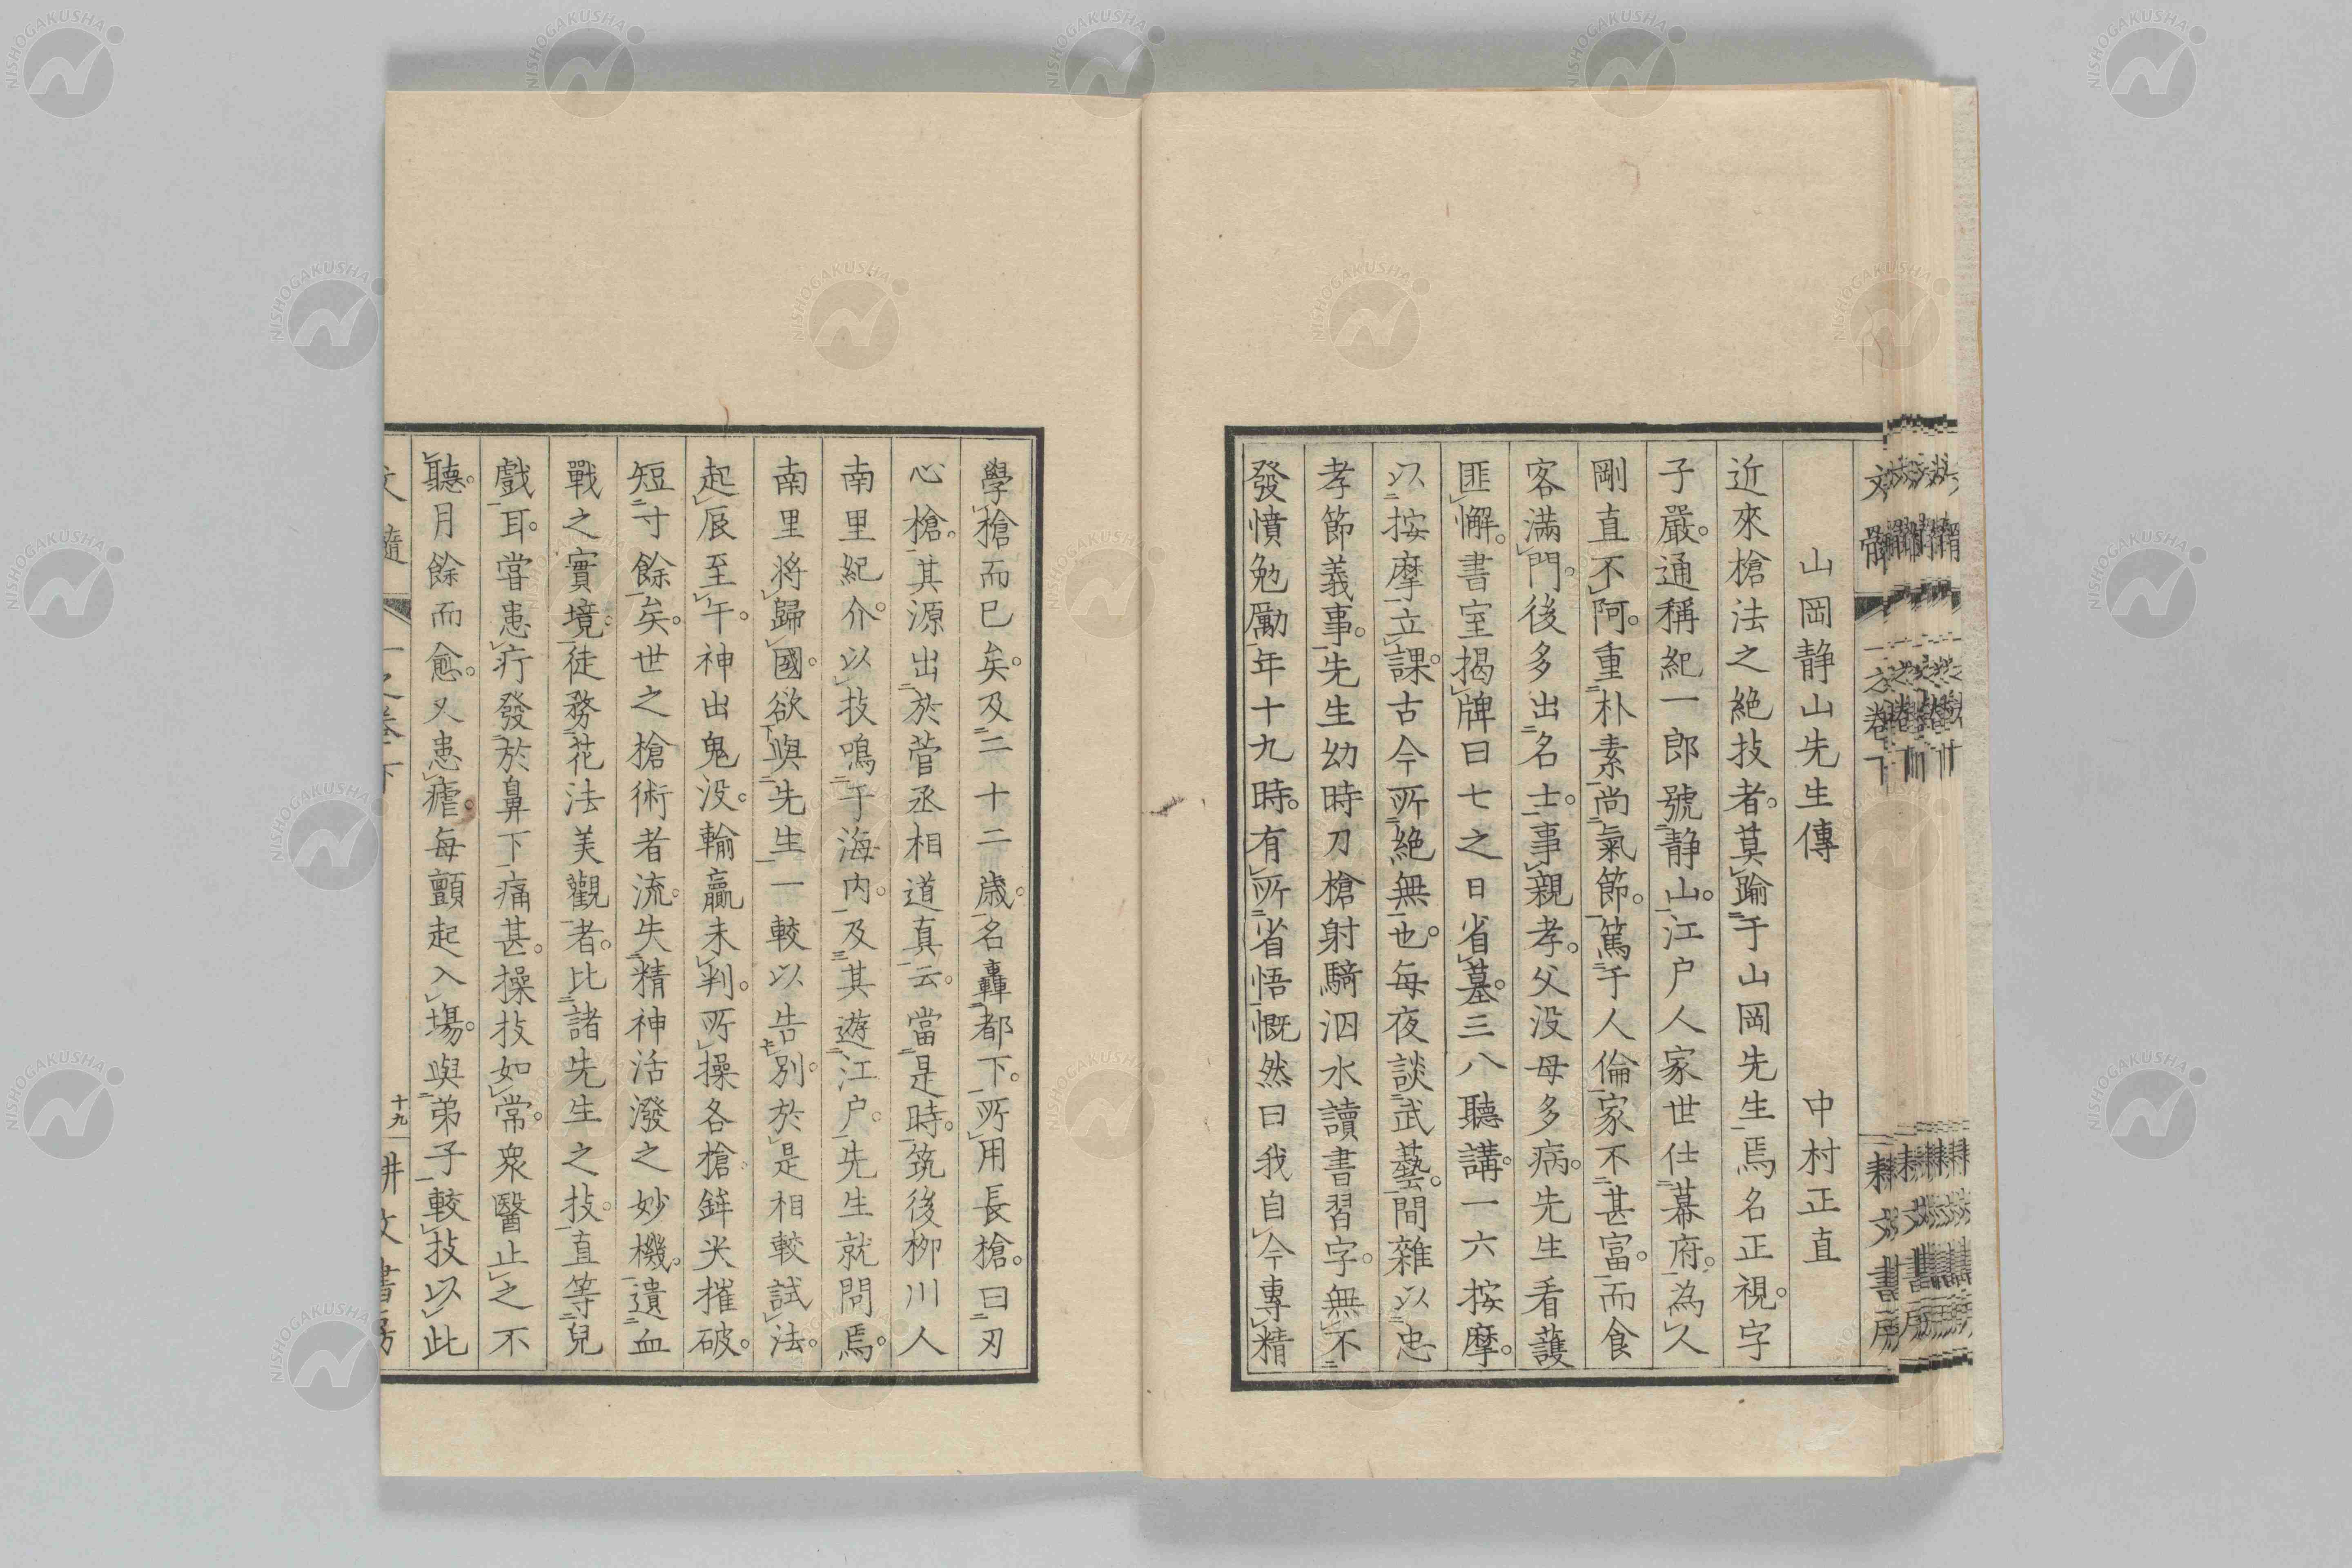 山岡静山先生傳　中村正直
近來槍法之絶技者。莫踰于山岡先生焉名正視。字
子嚴。通稱紀一郎號静山。江戸人家世仕幕府。為人
剛直不阿。重朴素尚氣節。篤于人倫家不甚富。而食
客滿門。後多出名士。事親孝。父没母多病。先生看護
匪懈。書室揭牌曰七之日省墓。三八聽講。一六按摩。
以按摩立課。古今所絶無也。每夜談武藝。間雜以忠
孝節義事。先生幼時刀槍射騎泅水讀書習字。無不
發憤勉勵年十九時。有所省悟慨然曰我自今專精
學槍而已矣。及二十二歳。名轟都下。所用長槍。曰刃
心槍。其源出於菅丞相道真云。當是時。筑後柳川人
南里紀介。以技鳴于海内。及其遊江户。先生就問焉。
南里將歸國。欲與先生一較以告別。於是相較試法。
起辰至午。神出鬼没。輸贏未判。所操各槍鉾尖摧破。
短寸餘矣。世之槍術者流。失精神活潑之妙機。遺血
戰之實境。徒務花法美觀者。比諸先生之技。直等兒
戲耳。嘗患疔發於鼻下痛甚。操技如常。衆醫止之不
聽。月餘而愈。又患瘧。每顫起入塲。與弟子較技以此
十九
文髓
一之卷下
耕文書房